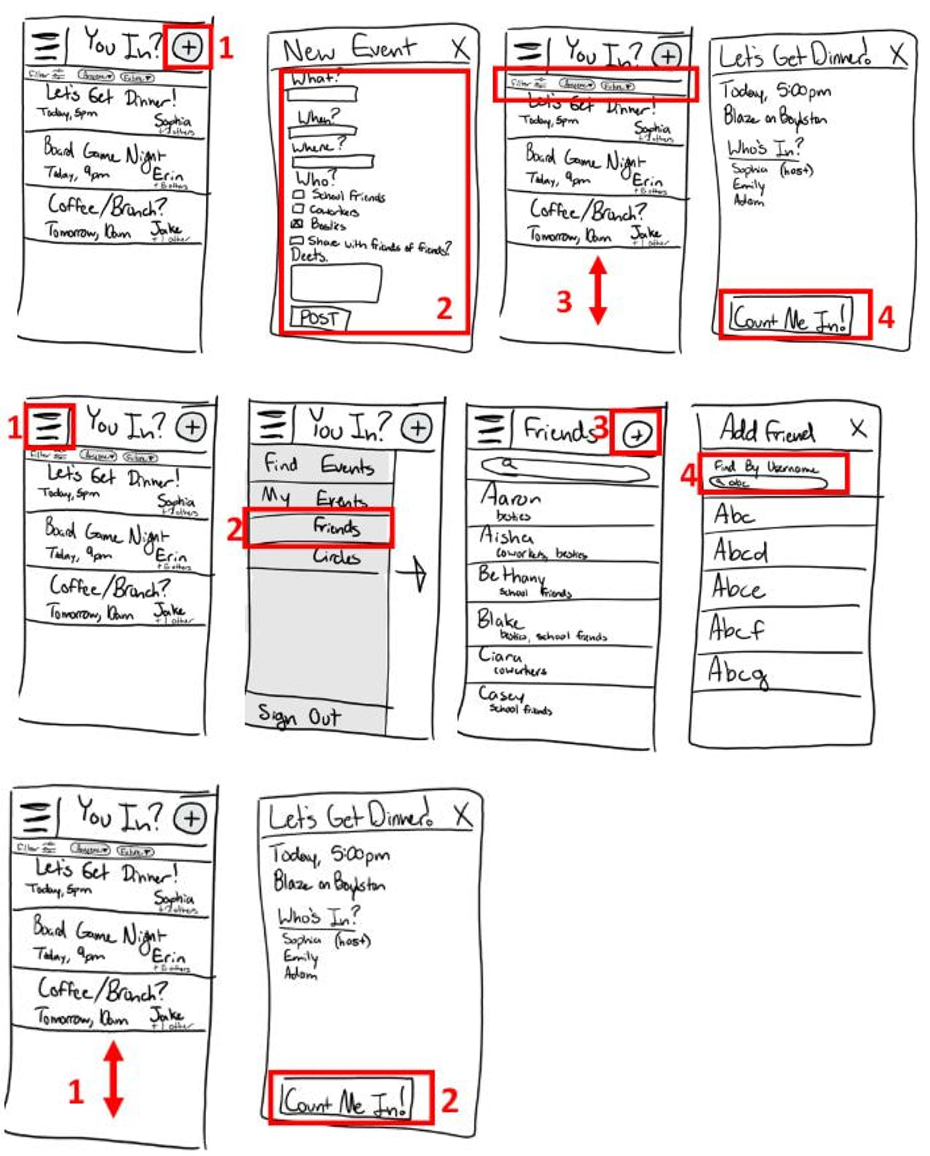 You In? +
1
Filter
Let's Get Dinner!
Today, 5pm
Sophia
+2 others
Board Game Night
Today, 9pm Erin
+6 others
Coffee/Brunch?
Tomorrow, 10am Jake
+1 other
New Event X
What?
When?
Where?
Who?
School Friends
Coworkers
Besties
Share with friends of friends?
Deets.
POST
2
You In? +
Filter
Let's Get Dinner!
Today, 5pm
Sophia
+2 others
Board Game Night
Today, 9pm Erin
+6 others
Coffee/Brunch?
Tomorrow, 10am Jake
+1 other
3
Let's Get Dinner! X
Today, 5:00pm
Blaze on Boylston
Who's In?
Sophia (host)
Emily
Adam
Count Me In!
4
1
You In? +
Filter
Let's Get Dinner!
Today, 5pm
Sophia
+2 others
Board Game Night
Today, 9pm Erin
+6 others
Coffee/Brunch?
Tomorrow, 10am Jake
+1 other
You In? +
Find Events
My Events
2
Friends
Circles
Sign Out
Friends
3
+
Aaron
besties
Aisha
coworkers, besties
Bethany
school friends
Blake
besties, school friends
Ciara
coworkers
Casey
School friends
Add Friend X
4
Find By Username
abc
Abc
Abcd
Abce
Abcf
Abcg
You In? +
Filter
Let's Get Dinner!
Today, 5pm
Sophia
+2 others
Board Game Night
Today, 9pm Erin
+6 others
Coffee/Brunch?
Tomorrow, 10am Jake
+1 other
1
Let's Get Dinner! X
Today, 5:00pm
Blaze on Boylston
Who's In?
Sophia (host)
Emily
Adam
Count Me In!
2